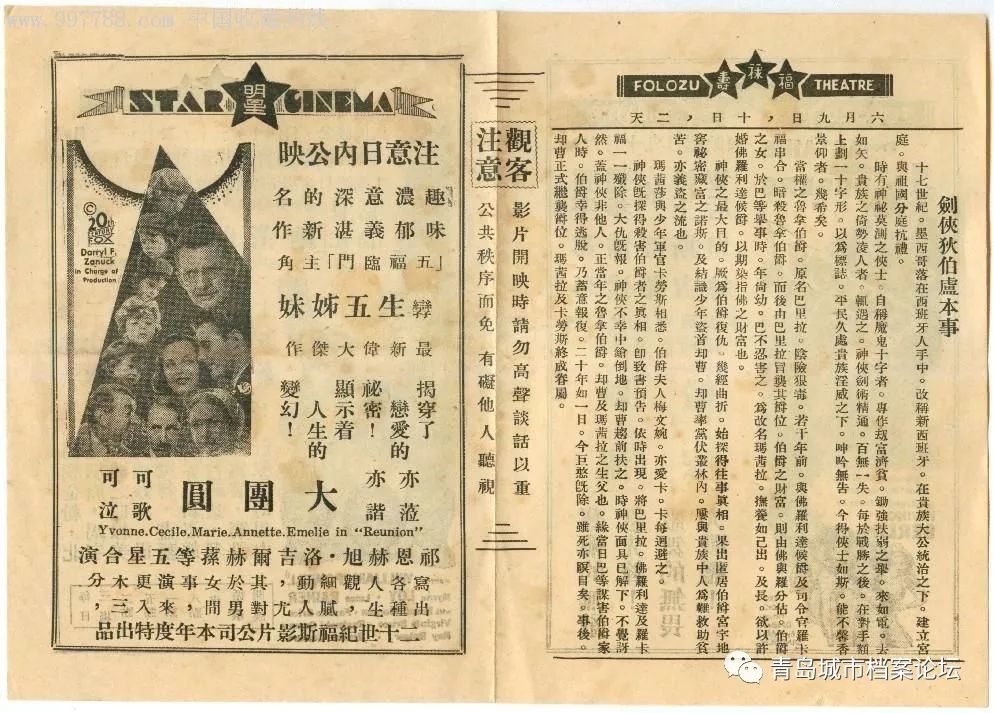 www.997788.com 中国收藏热线
FOLOZU 福祿壽 THEATRE
六月九日，十日，二天
劍俠狄伯盧本事
十七世紀。墨西哥落在西班牙人手中。改稱新西班牙。在貴族大公統治之下。建立宮
庭。與祖國分庭抗禮。
時有神祕莫測之俠士。自稱魔鬼十字者。專作刼富濟貧。鋤強扶弱之舉。來如電。去
如矢。貴族之倚勢凌人者。輒遇之。神俠劍術精通。百無一失。每於戰勝之後。在對手額
上劃一十字形。以爲標誌。平民久處貴族淫威之下。呻吟無告。今得俠士如斯。能不馨香
景仰者。幾希矣。
當權之魯拿伯爵。原名巴里拉。陰險狠毒。若干年前。與佛羅利達候爵及司令官羅卡
福串合。暗殺魯拿伯爵。而後由巴里拉冒襲其爵位。伯爵之財富。則由佛與羅分佔。伯爵
之女。於巴等舉事時。年尙幼。巴不忍害之。爲改名瑪茜拉。撫養如己出。及長。欲以許
婚佛羅利達候爵。以期染指佛之財富也。
神俠之最大目的。厥爲伯爵復仇。幾經曲折。始探得往事眞相。果出匿居伯爵宮宇地
窖祕密藏富之諾斯。及結識少年盜首却曹。却曹率黨伏叢林內。屢與貴族中人爲難救助貧
苦。亦義盜之流也。
瑪茜莎與少年軍官卡勞斯相悉。伯爵夫人梅文婉。亦愛卡。卡每迴避之。
神俠旣探得殺害伯爵者之眞相。卽致書預告。依時出現。將巴里拉。佛羅利達及羅卡
福一一殲除。大仇旣報。神俠不幸中鎗倒地。却曹趨前扶之。時神俠面具已解下。不覺訝
然。蓋神俠非他人。正當年之魯拿伯爵。却曹及瑪茜拉之生父也。緣當日巴等謀害伯爵家
人時。伯爵幸得逃脫。乃蓄意報復。二十年如一日。今巨憨旣除。雖死亦瞑目矣。事後。
却曹正式繼襲爵位。瑪茜拉及卡勞斯終成眷屬。
觀客注意
影片開映時請勿高聲談話以重
公共秩序而免有礙他人聽視
STAR 明星 CINEMA
注意日內公映
趣濃意深的名
味郁義湛新作
「五福臨門」主角
孿生五姊妹
最新偉大傑作
揭穿了
戀愛的
祕密！
顯示着
人生的
變幻！
©
20th CENTURY FOX
Darryl F.
Zanuck
in Charge of
Production
亦莅
亦諧
大團圓
可歌
可泣
Yvonne.Cecile.Marie.Annette.Emelie in "Reunion"
祁恩赫旭·洛吉爾赫蓀等五星合演
寫各人觀細動，其於女事演更木分
出種生，賦人尤對男間，來入三，
二十世紀福斯影片公司本年度特出品
青岛城市档案论坛